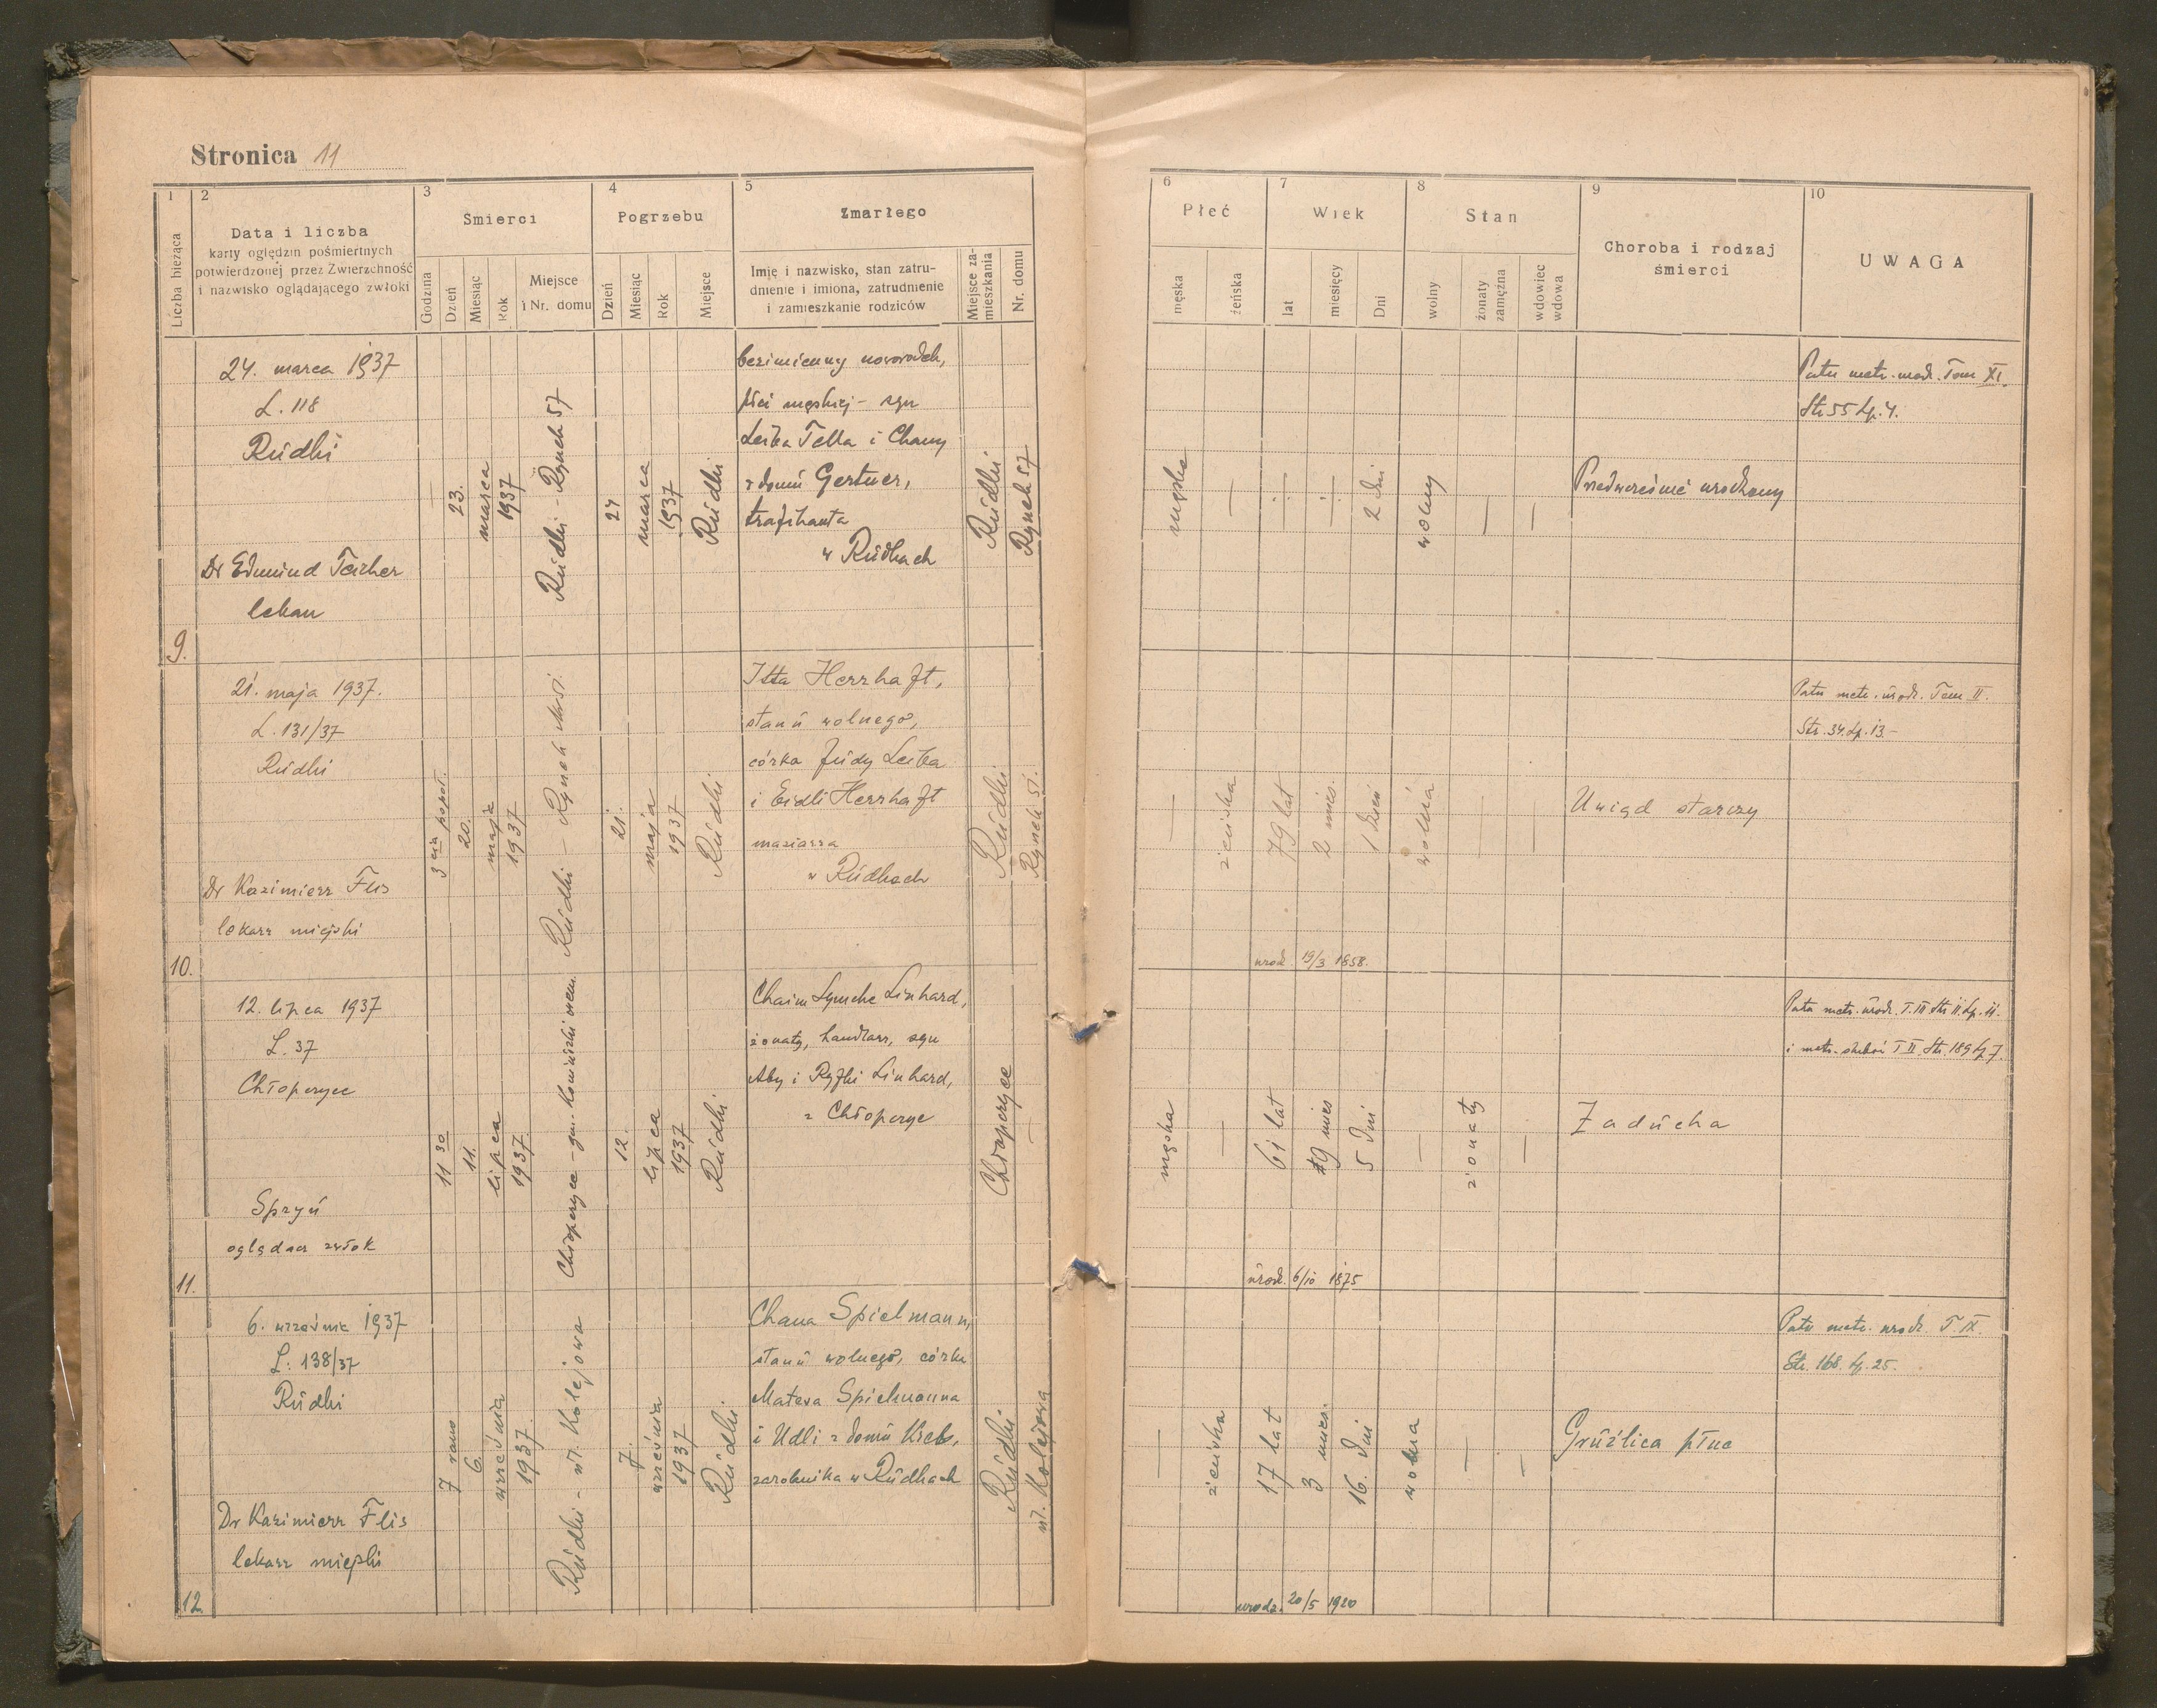 Stronica 11
1 2 3 4 5
Liczba bieżąca
Data i liczba
karty oględzin pośmiertnych
potwierdzonej przez Zwierzchność
i nazwisko oglądającego zwłoki
Śmierci
Godzina
Dzień
Miesiąc
Rok
Miejsce
i Nr. domu
Pogrzebu
Dzień
Miesiąc
Rok
Miejsce
Zmarłego
Imię i nazwisko, stan zatru-
dnienie i imiona, zatrudnienie
i zamieszkanie rodziców
Miejsce za-
mieszkania
Nr. domu
6 7 8 9 10
Płeć
męska
żeńska
Wiek
lat
miesięcy
Dni
Stan
wolny
żonaty
zamężna
wdowiec
wdowa
Choroba i rodzaj
śmierci
UWAGA
9.
24. marca 1937
L. 118
Rudki
Dr Edmund
lekarz
—
23.
marca
1937
Rudki - Rynek 57
24
marca
1937
Rudki
bezimienny noworodek,
płci męskiej - syn
Leiba Tella i Chany
z domu Gertner,
trafikanta
w Rudkach
Rudki
Rynek 57
męska
—
2 dni
wolny
—
—
Przedwcześnie urodzony
Patrz metr. urodz. Tom XI.
Str 55 Lp. 4.
10.
21. maja 1937.
L. 131/37
Rudki
Dr Kazimierz Flis
lekarz miejski
3 cia popoł.
20.
maja
1937
Rudki - Rynek 51.
21.
maja
1937
Rudki
Itta Herzhaft,
stanu wolnego,
córka Judy Leiba
i Eidli Herzhaft
maziarza
w Rudkach
Rudki
Rynek 51.
—
żeńska
79 lat
2 mies.
1 dzień
wolna
—
—
Uwiąd starczy
urodz. 19/3 1858.
Patrz metr. urodz. Tom II.
Str. 34. Lp. 13.-
11.
12. lipca 1937
L. 37
Chłopczyce
Spryń
oglądacz zwłok
11 30
11.
lipca
1937.
Chłopczyce - gm.
12.
lipca
1937
Rudki
Chaim Symche Linhard,
żonaty, handlarz, syn
Aby i Ryfki Linhard,
z Chłopczyc
Chłopczyce
—
męska
—
61 lat
9 mies
5 dni
—
żonaty
—
Zaducha
urodz. 6/10 1875
Patrz metr. urodz. T. III Str 11. Lp. 11.
i metr. ślubów T II Str. 189 Lp 7.
12.
6. września 1937
L: 138/37
Rudki
Dr Kazimierz Flis
lekarz miejski
7 rano
6.
września
1937.
Rudki - ul. Kolejowa
7.
września
1937
Rudki
Chana Spielmann,
stanu wolnego, córka
Matesa Spielmanna
i Udli z domu Kreb,
zarobnika w Rudkach
Rudki
ul. Kolejowa
—
żeńska
17 lat
3 mies.
16. dni
wolna
—
—
Gruźlica płuc
urodz. 20/5 1920
Patrz metr. urodz. T IX.
Str. 168. Lp. 25.